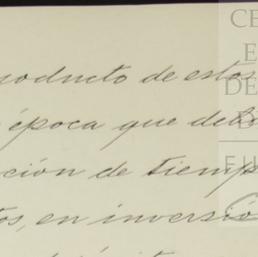 producto de estos
época que deb
ción de tiemp
tos, en inversió
CE
E
DE